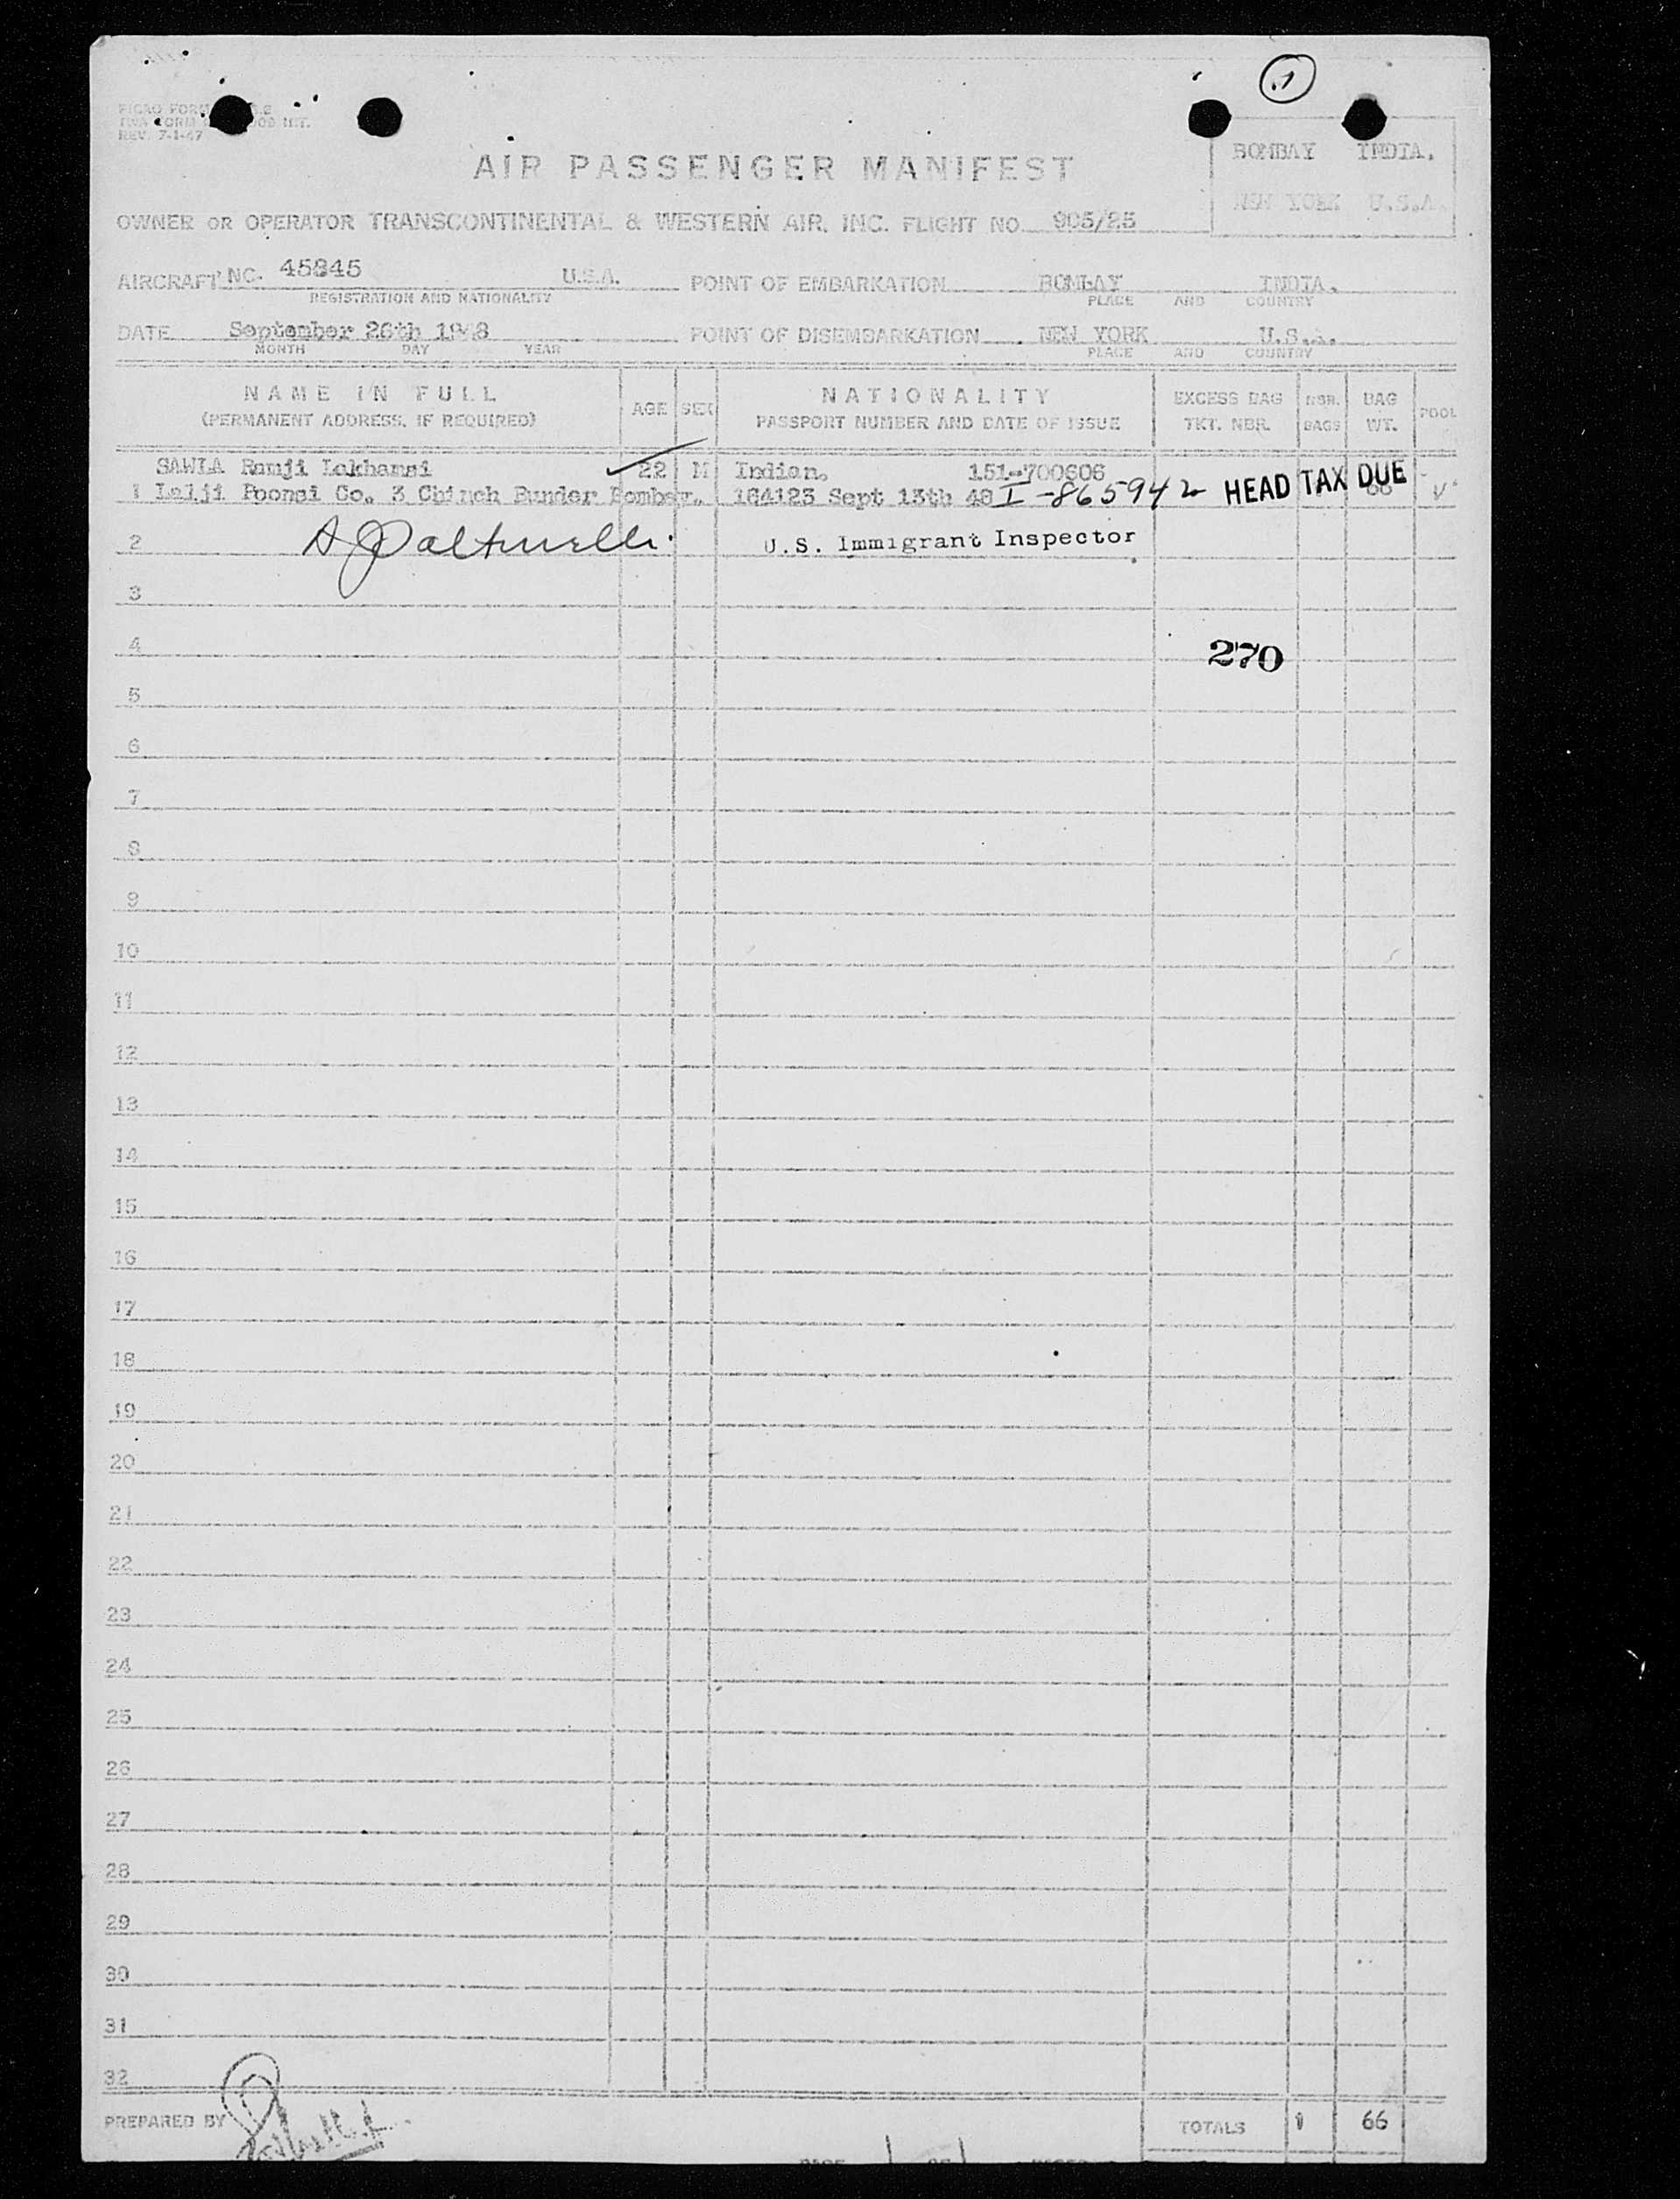 1
REV. 7-1-47
AIR PASSENGER MANIFEST
BOMBAY INDIA.
NEW YORK U.S.A.
OWNER OR OPERATOR TRANSCONTINENTAL & WESTERN AIR, INC. FLIGHT NO. 905/25
AIRCRAFT NC. 45345 U.S.A. POINT OF EMBARKATION BOMBAY INDIA.
REGISTRATION AND NATIONALITY PLACE AND COUNTRY
DATE September 26th 1948 POINT OF DISEMBARKATION NEW YORK U.S.A.
MONTH DAY YEAR PLACE AND COUNTRY
NAME IN FULL AGE SEX NATIONALITY EXCESS BAG NBR. BAG POOL
(PERMANENT ADDRESS, IF REQUIRED) PASSPORT NUMBER AND DATE OF ISSUE TKT. NBR. BAGS WT.
SAWLA Ramji Lakhamsi 22 M Indian. 151-700606
1 Lalji Poonsi Co. 3 Chinch Bunder Bombay. 164123 Sept 13th 48 I-865942 HEAD TAX DUE
2 U.S. Immigrant Inspector
3
4 270
5
6
7
8
9
10
11
12
13
14
15
16
17
18
19
20
21
22
23
24
25
26
27
28
29
30
31
32
PREPARED BY TOTALS 1 66